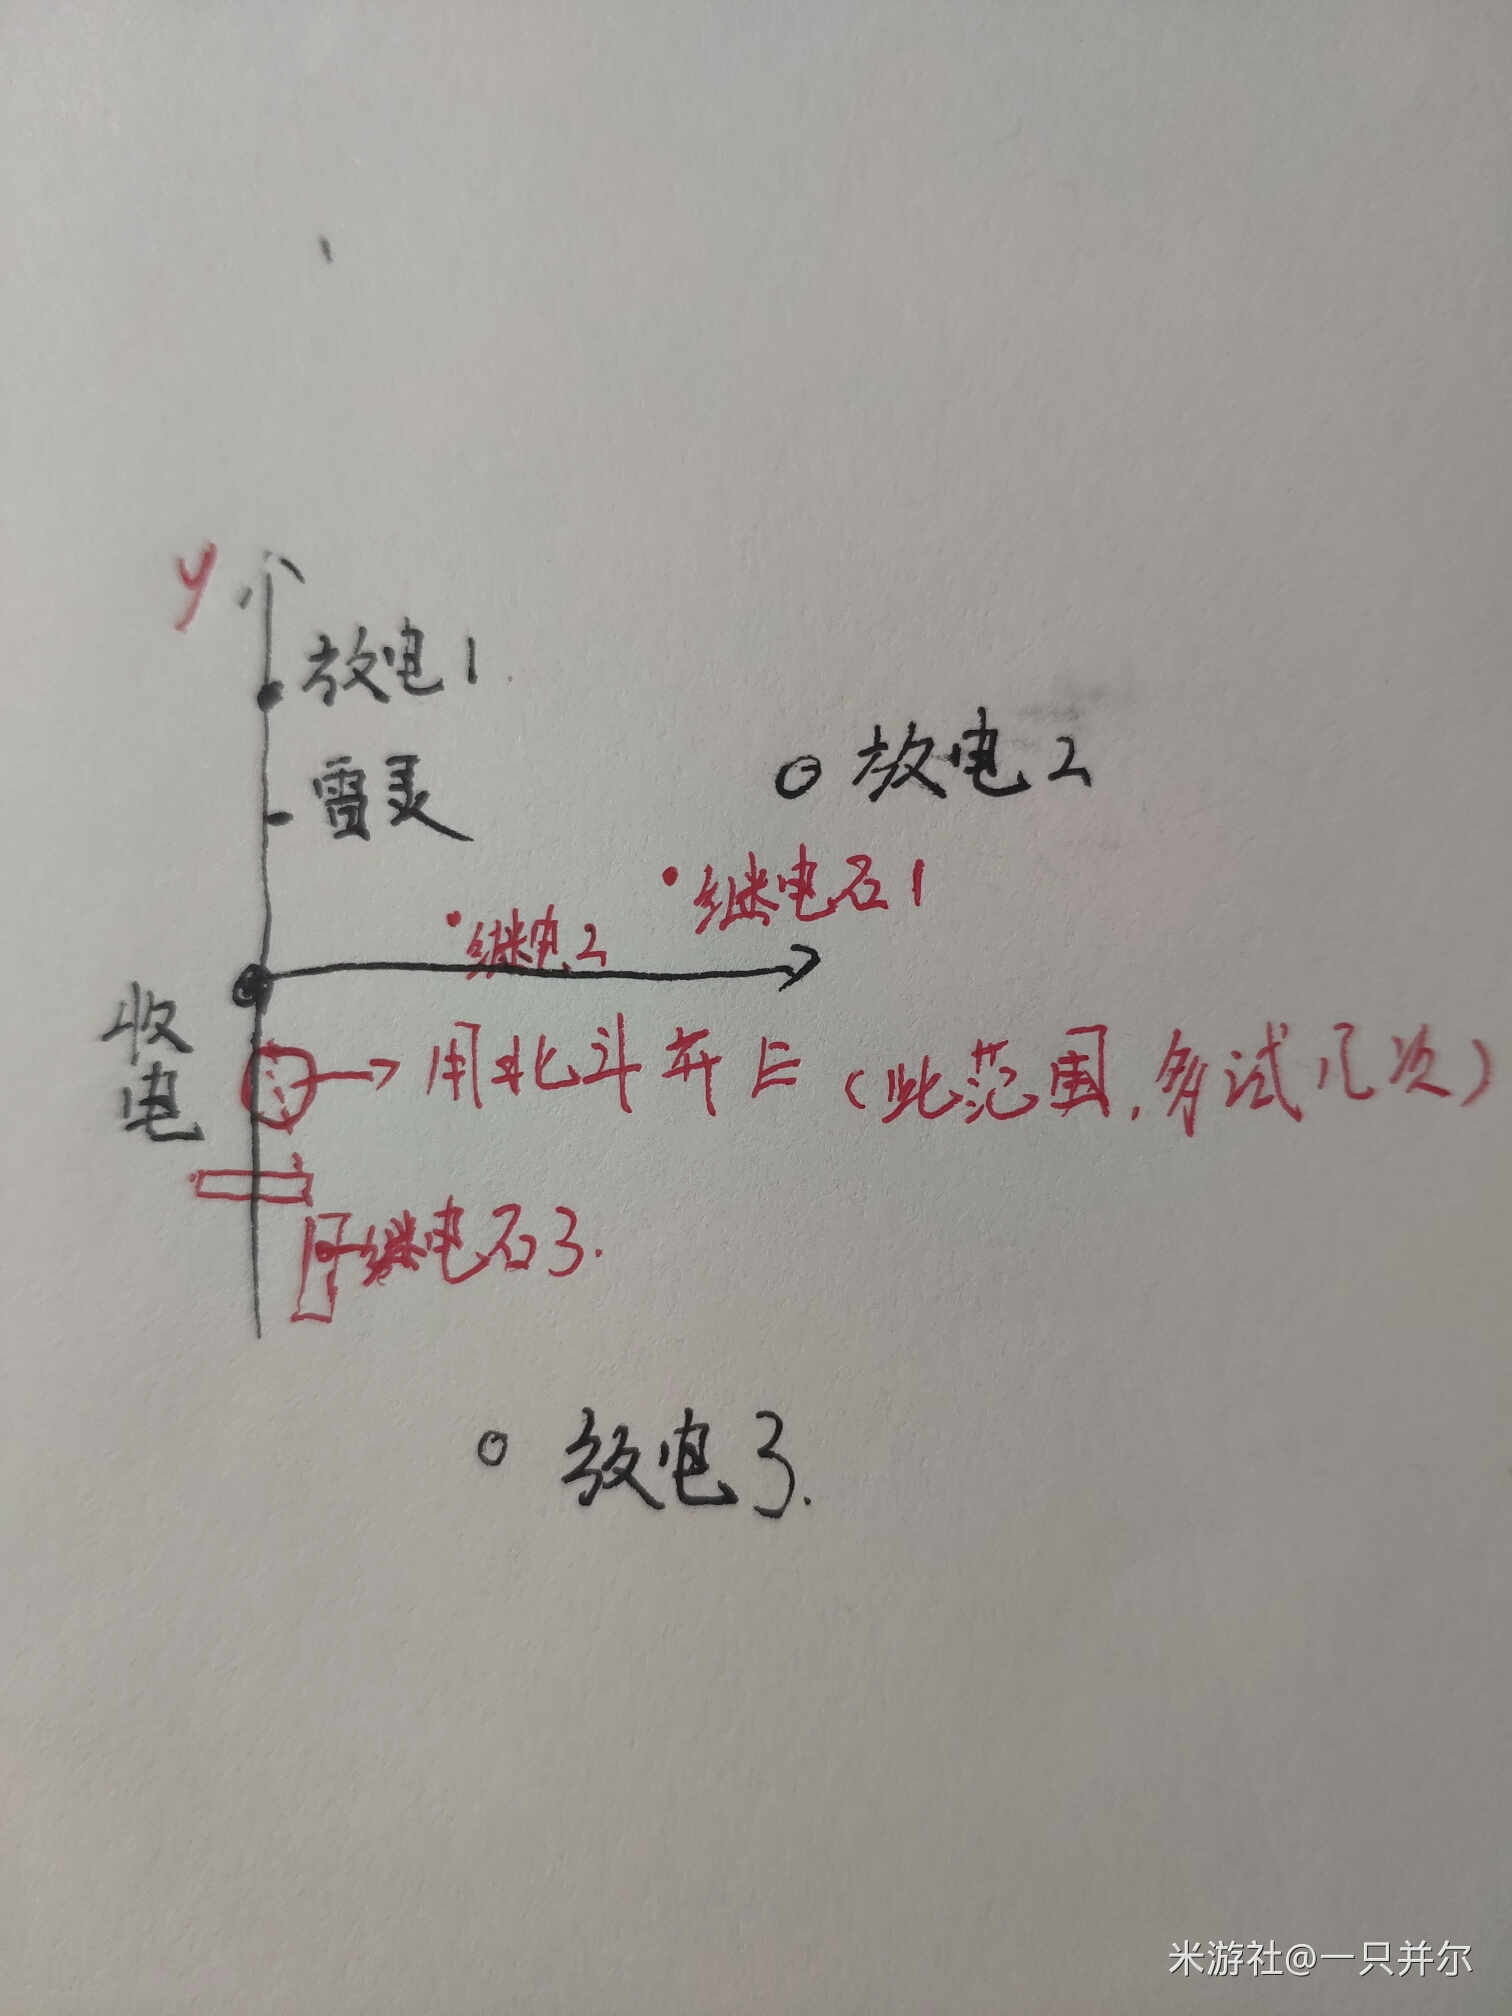 y
放电1
雷灵
放电2
继电石1
继电2
收电
用北斗开E(此范围,多试几次)
继电石3.
放电3.
米游社@一只并尔